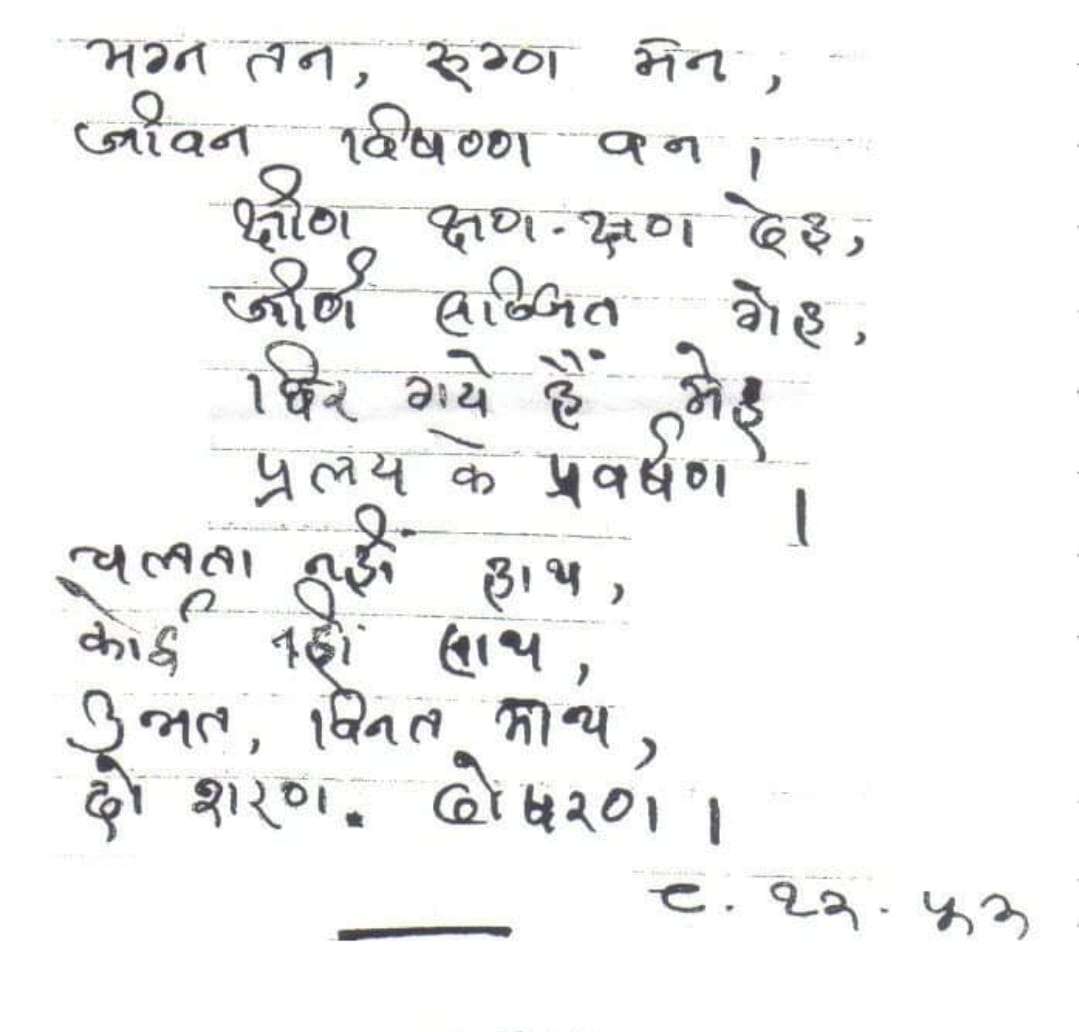 भग्न तन, रुग्ण मन,
जीवन विषण्ण वन।
क्षीण क्षण-क्षण देह,
जीर्ण सज्जित गेह,
घिर गये हैं मेह
प्रलय के प्रवर्षण।
चलता नहीं हाथ,
कोई नहीं साथ,
उन्नत, विनत माथ,
दो शरण. दोषरण।
८. १२. ५२